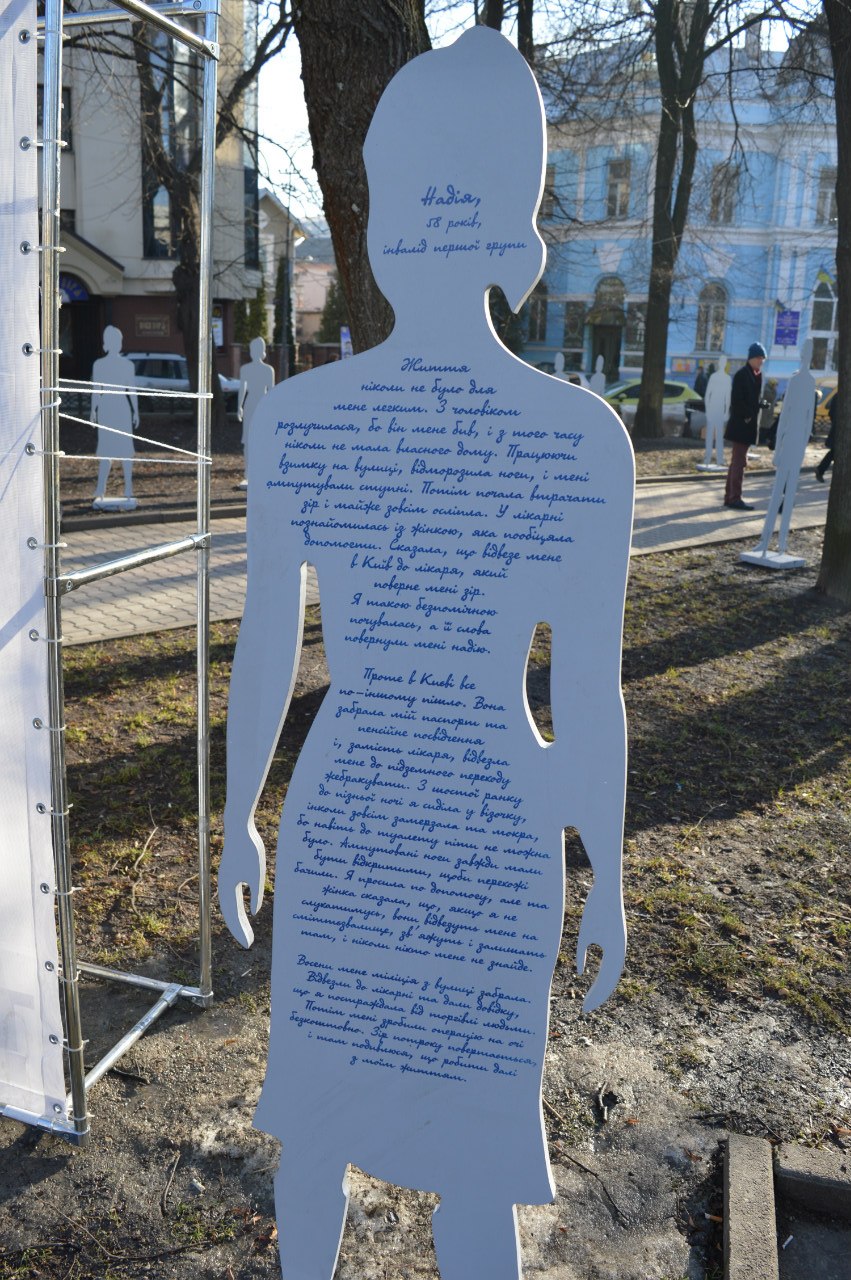 Надія,
58 років,
інвалід першої групи
Життя
ніколи не було для
мене легким. З чоловіком
розлучилася, бо він мене бив, і з того часу
ніколи не мала власного дому. Працюючи
взимку на вулиці, відморозила ноги, і мені
ампутували ступні. Потім почала втрачати
зір і майже зовсім осліпла. У лікарні
познайомилась із жінкою, яка пообіцяла
допомогти. Сказала, що відвезе мене
в Київ до лікаря, який
поверне мені зір.
Я такою безпомічною
почувалась, а її слова
повернули мені надію.
Проте в Києві все
по-іншому пішло. Вона
забрала мій паспорт та
пенсійне посвідчення
і, замість лікаря, відвезла
мене до підземного переходу
жебракувати. З шостої ранку
до пізньої ночі я сиділа у візочку,
інколи зовсім замерзала та мокра,
бо навіть до туалету піти не можна
було. Ампутовані ноги завжди мали
бути відкритими, щоби перехожі
бачили. Я просила по допомогу, але та
жінка сказала, що, якщо я не
слухатимусь, вони відвезуть мене на
сміттєзвалище, зв'яжуть і залишать
там, і ніколи ніхто мене не знайде.
Восени мене міліція з вулиці забрала.
Відвезли до лікарні та дали довідку,
що я постраждала від торгівлі людьми.
Потім мені зробили операцію на очі
безкоштовно. Зір потроху повертається,
і там подивлюся, що робити далі
з моїм життям.